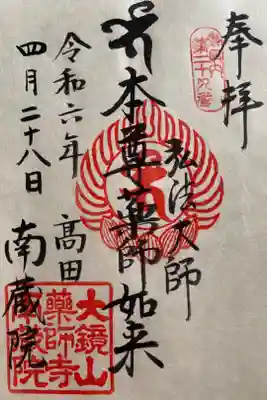 奉拝
御府内
第二十九番
弘法大師
本尊薬師如来
令和六年
四月二十八日
高田
南蔵院
大鏡山
藥師寺
南蔵院